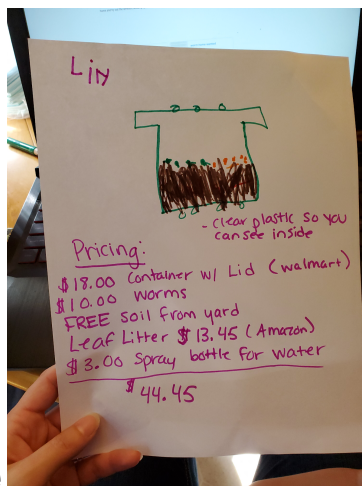 Lin
- clear plastic so you
can see inside
Pricing:
$18.00 Container w/ Lid (walmart)
$10.00 worms
FREE soil from yard
Leaf Litter $13.45 (Amazon)
$3.00 Spray bottle for water
$44.45